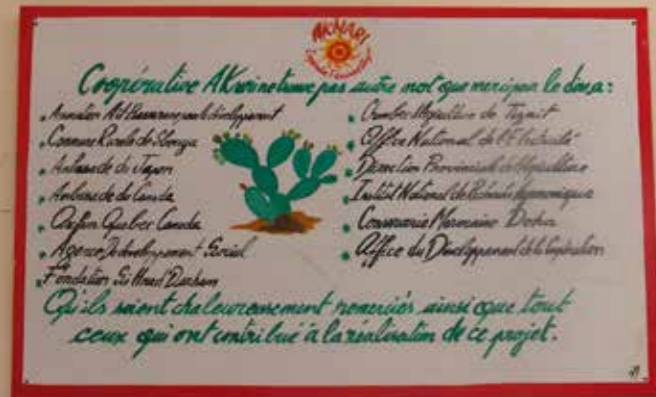 AKNARI
Coopérative AKnari ne trouve pas autre mot que merci pour le dire à:
Association Aït pour le développement
Commune Rurale de Sbouya
Ambassade du Japon
Ambassade du Canda
Oxfam Québec Canada
Agence Développement Social
Fondation
Chambre Agriculture de Tiznit
Office National de l'Eléctricité
Direction Provinciale de l'Agriculture
Institut National de Recherche Agronomique
Marocaine
Office du Développement de la Coopération
Qu'ils soient chaleureusement remerciés ainsi que tout
ceux qui ont contribué à la réalisation de ce projet.